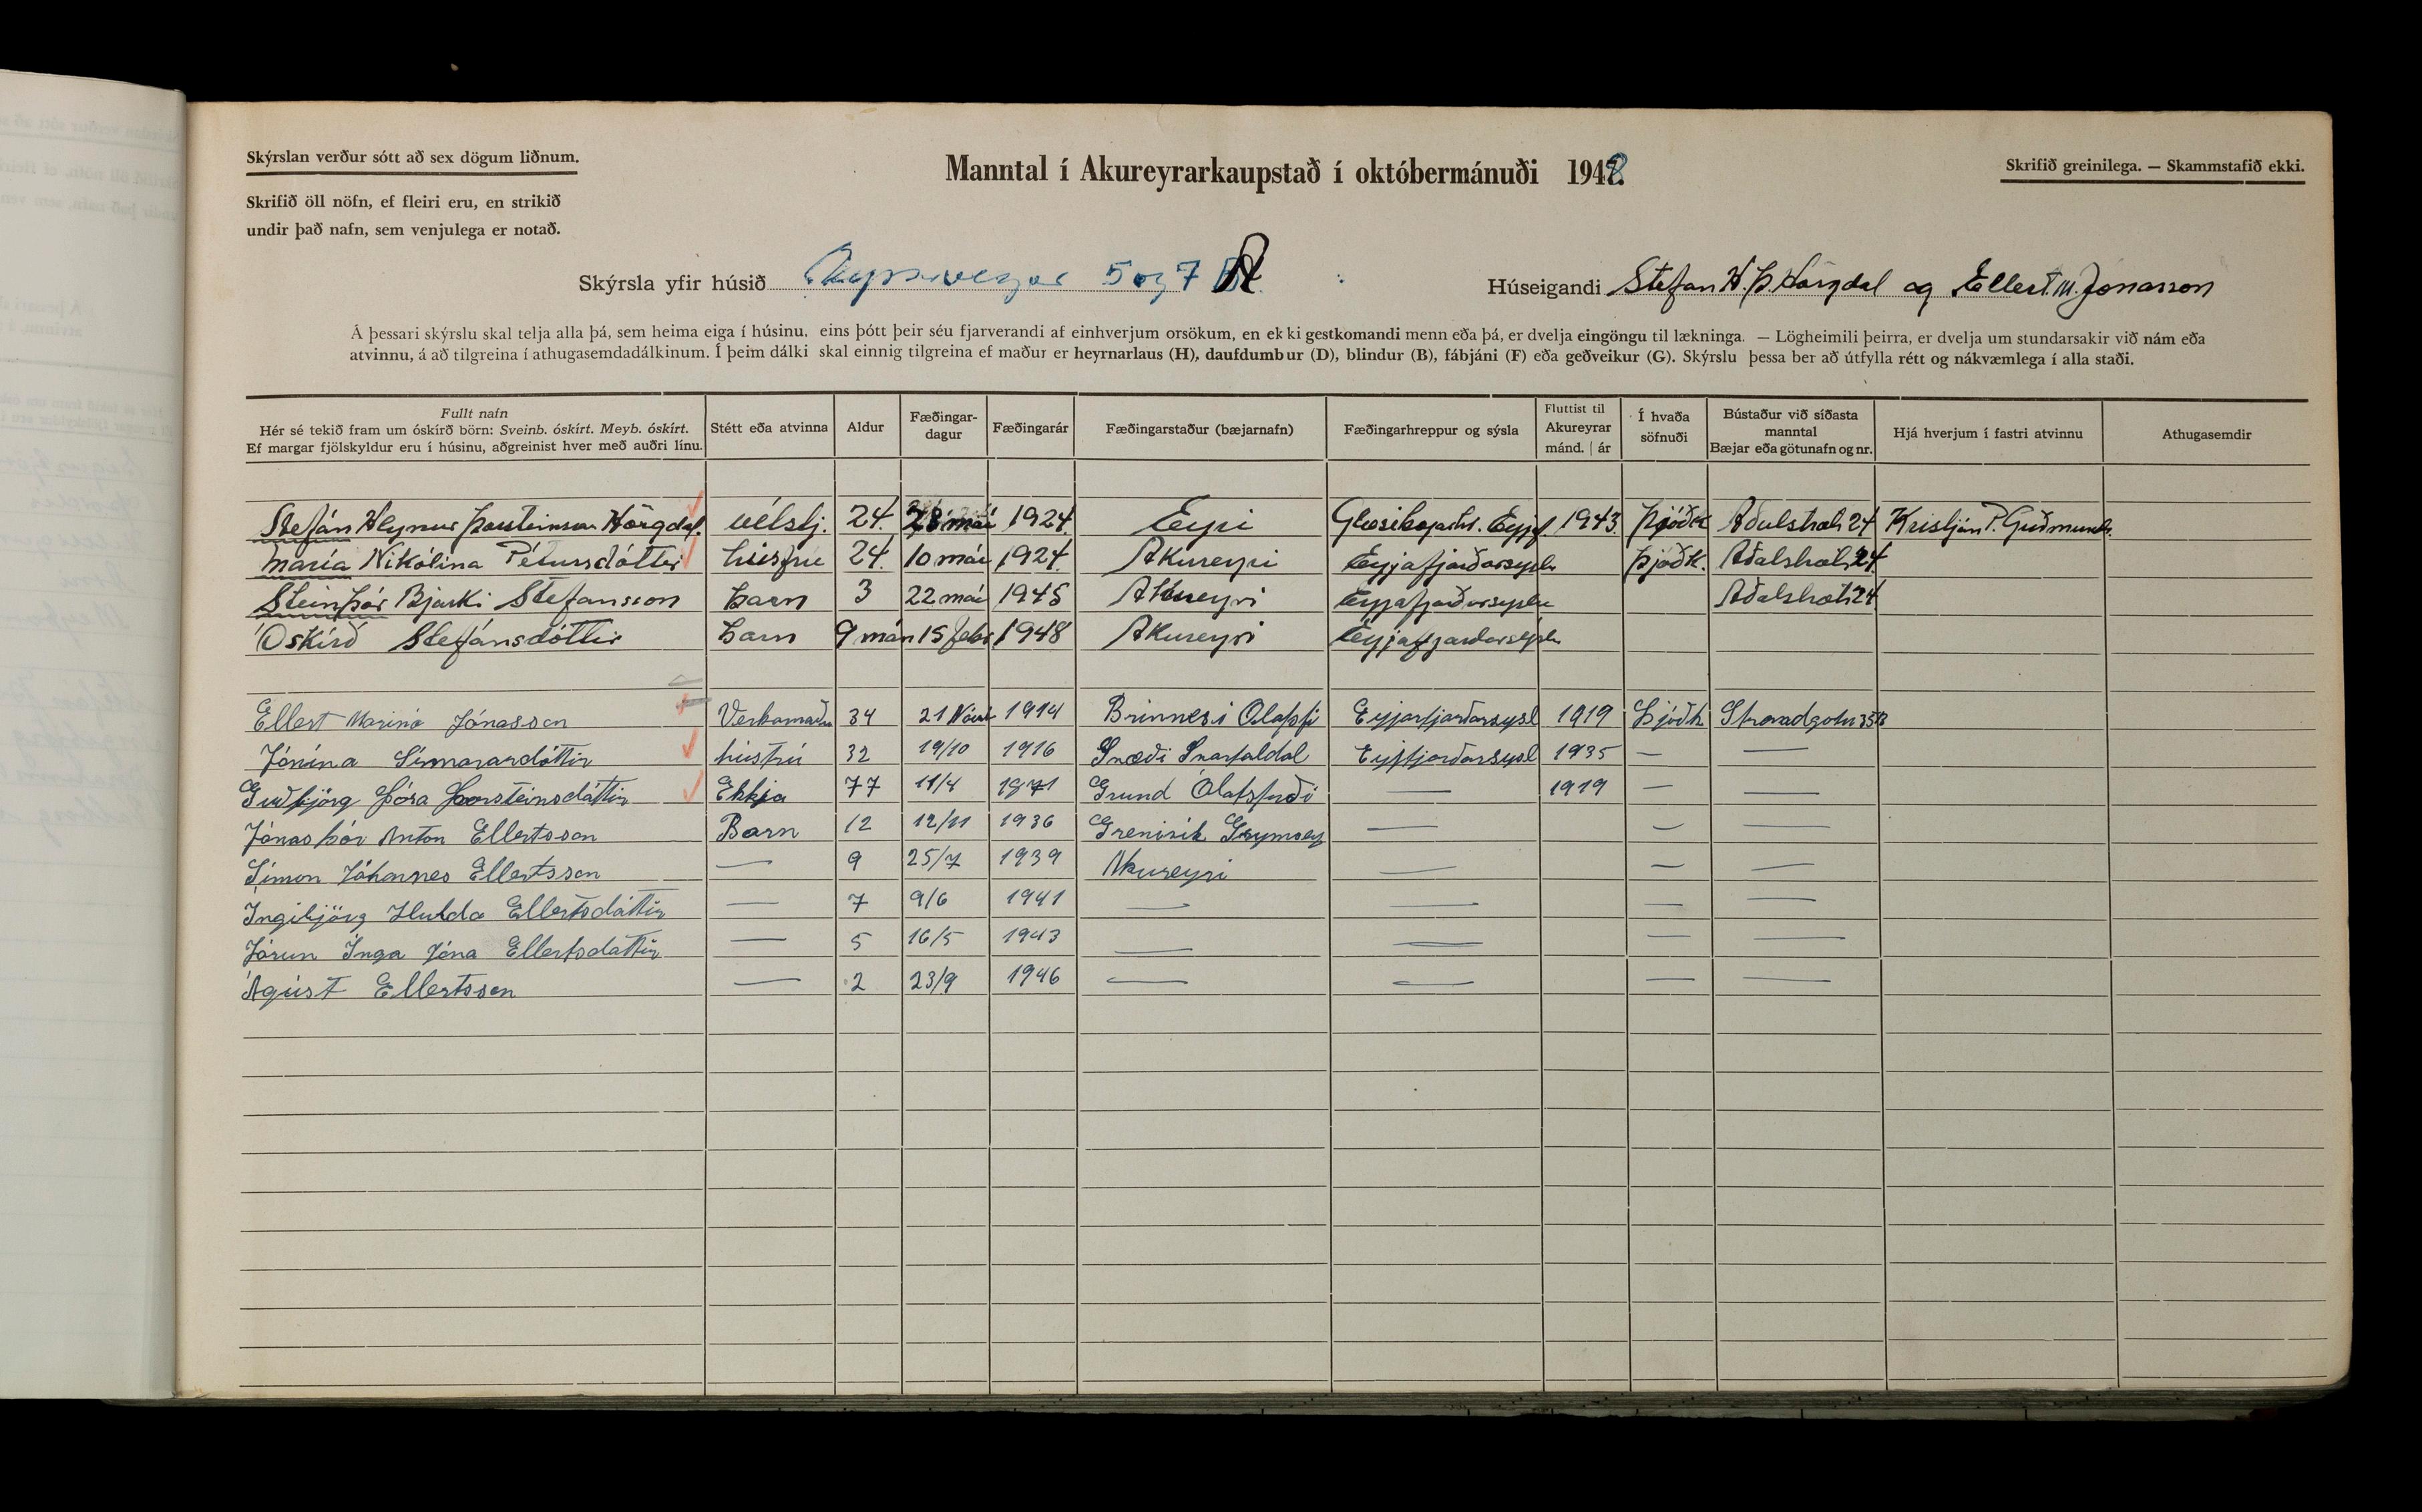 Skýrslan verður sótt að sex dögum liðnum.
Skrifið öll nöfn, ef fleiri eru, en strikið
undir það nafn, sem venjulega er notað.
Manntal í Akureyrarkaupstað í októbermánuði 1948
Skrifið greinilega. — Skammstafið ekki.
Skýrsla yfir húsið 5 og 7 A
Húseigandi Stefan H. Þ. Hörgdal og Ellert. M. Jónasson
Á þessari skýrslu skal telja alla þá, sem heima eiga í húsinu, eins þótt þeir séu fjarverandi af einhverjum orsökum, en ekki gestkomandi menn eða þá, er dvelja eingöngu til lækninga. — Lögheimili þeirra, er dvelja um stundarsakir við nám eða
atvinnu, á að tilgreina í athugasemdadálkinum. Í þeim dálki skal einnig tilgreina ef maður er heyrnarlaus (H), daufdumbur (D), blindur (B), fábjáni (F) eða geðveikur (G). Skýrslu þessa ber að útfylla rétt og nákvæmlega í alla staði.
Fullt nafn Hér sé tekið fram um óskírð börn: Sveinb. óskírt. Meyb. óskírt. Ef margar fjölskyldur eru í húsinu, aðgreinist hver með auðri línu. Stétt eða atvinna Aldur Fæðingar-dagur Fæðingarár Fæðingarstaður (bæjarnafn) Fæðingarhreppur og sýsla Fluttist til Akureyrar mánd. | ár Í hvaða söfnuði Bústaður við síðasta manntal Bæjar eða götunafn og nr. Hjá hverjum í fastri atvinnu Athugasemdir
Stefán Hlynur Þorsteinsson Hörgdal. vélstj. 24. 28 mai 1924. Eyri Eyjaf. 1943. Þjóðk Aðalstræti 24 Kristján P. Guðmunds.
María Nikólína Pétursdóttir húsfrú 24. 10 mai 1924. Akureyri Eyjafjarðarsyslu Þjóðk. Aðalstræti 24.
Steinþór Bjarki Stefansson barn 3 22 mai 1945 Akureyri Eyjafjarðarsyslu Aðalstræti 24
Oskírð Stefánsdóttir barn 9 mán 15 febr 1948 Akureyri Eyjafjarðarsýslu
Ellert Marinó Jónasson Verkamaður 34 21 Nóv 1914 Brinnesi Olafsfi Eyjarfjarðarsysl 1919 Þjóðk Strandgotu 35B
Jónína húsfrú 32 19/10 1916 Snæði Svarfaldal Eyjfjorðarsysl 1935 — —
Guðbjörg Þóra Þorsteinsdóttir Ekkja 77 11/4 1871 Grund Ólafsfirði — 1919 — —
Jónas Þór Anton Ellertsson Barn 12 12/11 1936 Grenivík Grymsey — — —
Símon Jóhannes Ellertsson — 9 25/7 1939 Akureyri — — —
Ingibjörg Hulda Ellertsdóttir — 7 9/6 1941 — — — —
Jórun Inga Jóna Ellertsdottir — 5 16/5 1943 — — — —
Ágúst Ellertsson — 2 23/9 1946 — — — —